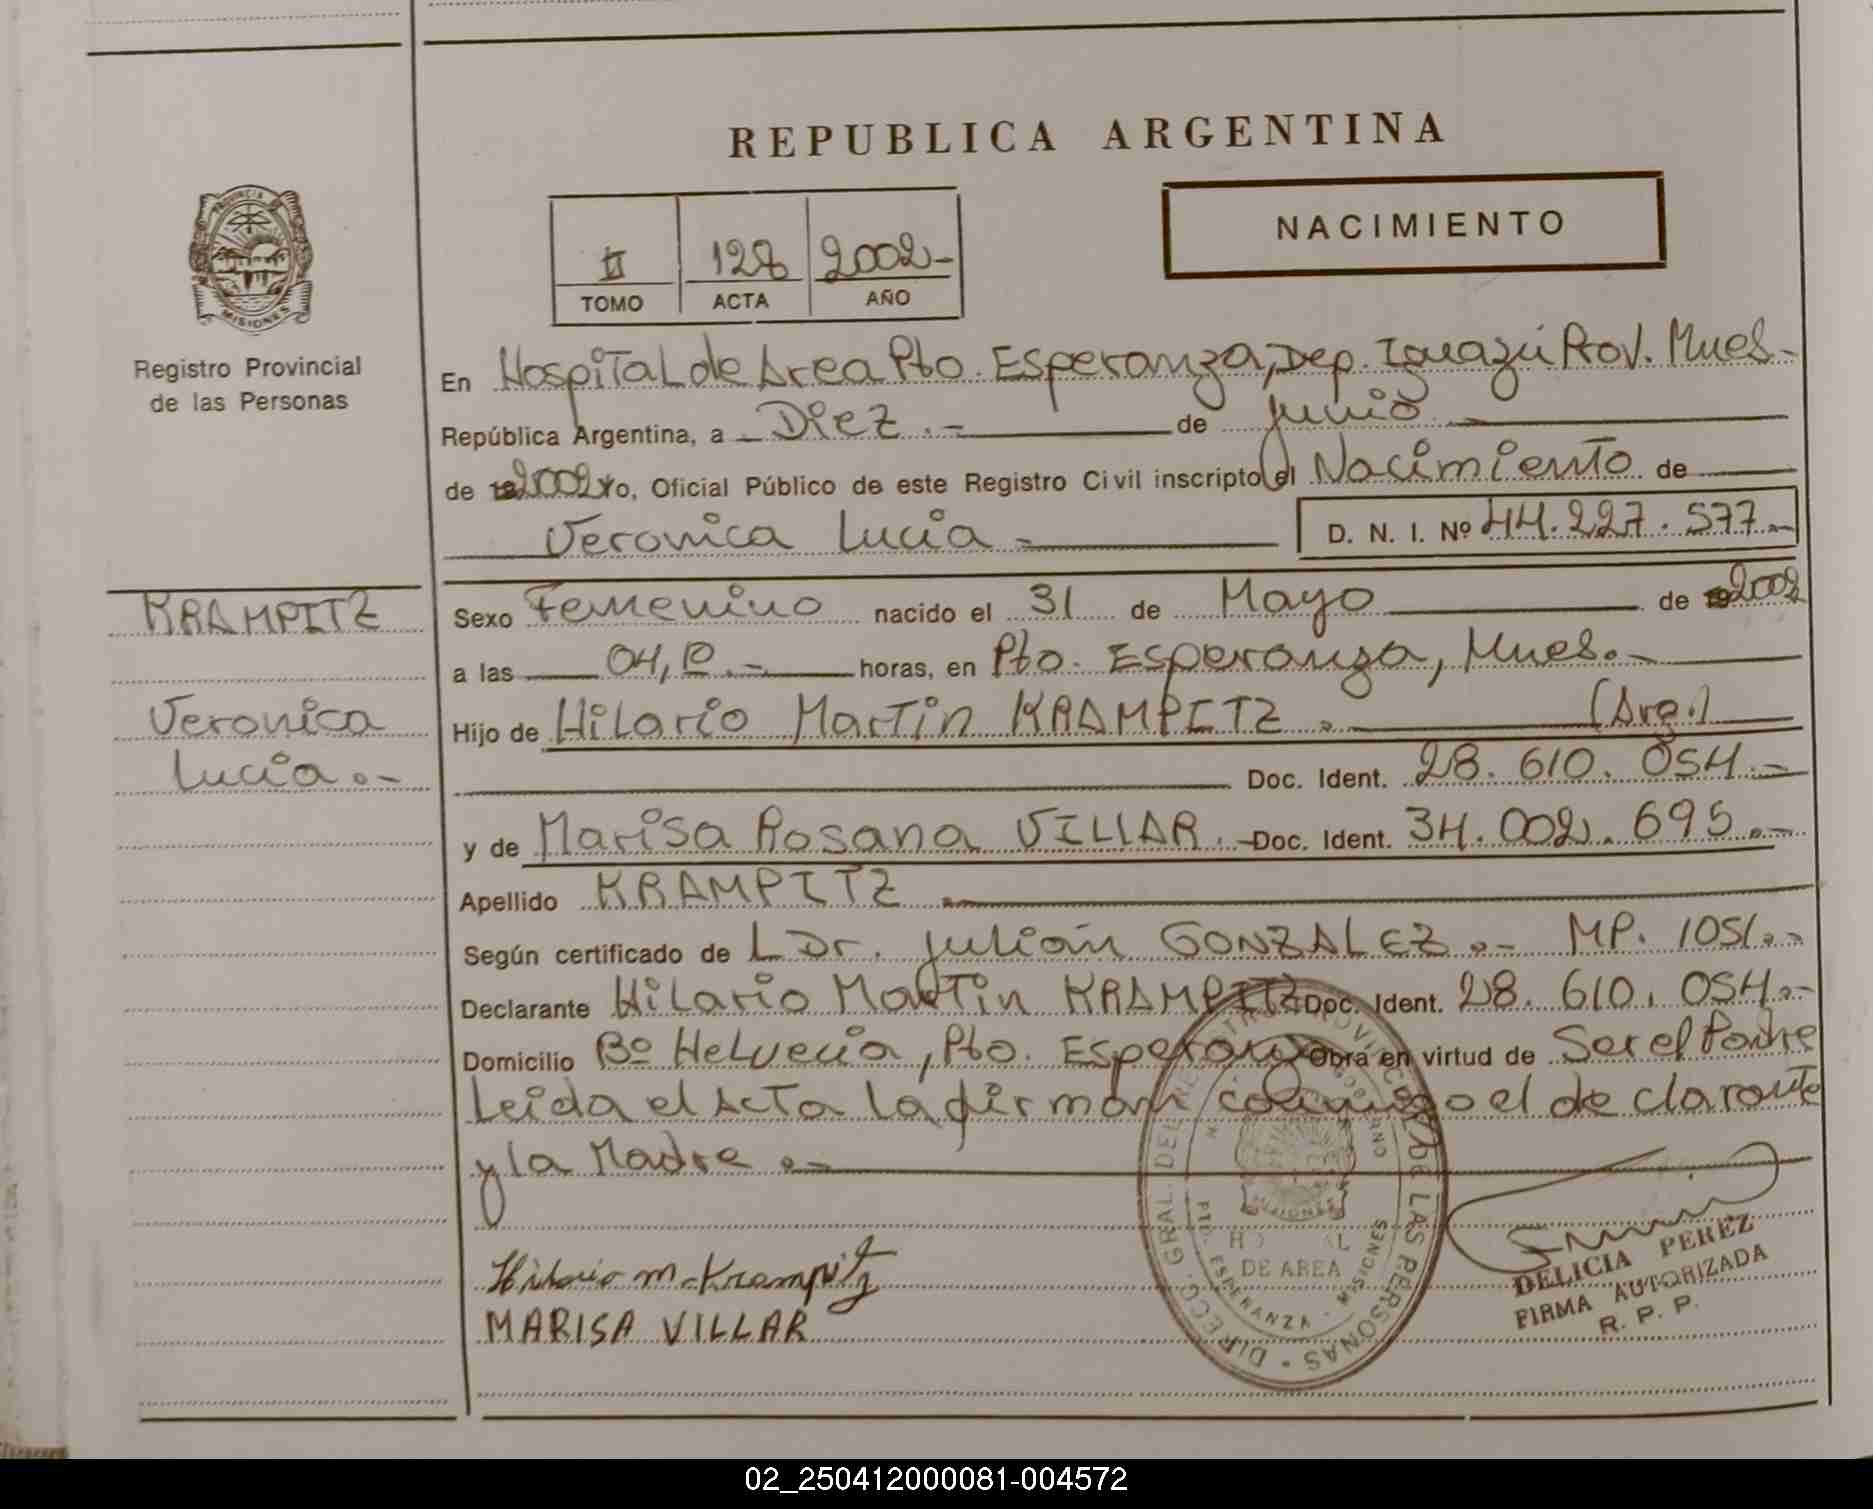 REPUBLICA ARGENTINA
NACIMIENTO
II 128 2002-
TOMO ACTA AÑO
PROVINCIA
MISIONES
Registro Provincial
de las Personas
En Hospital de Area Pto. Esperanza, Dep. Iguazú Prov. Mnes-
República Argentina, a - Diez.- de junio
de 2002 Yo, Oficial Público de este Registro Civil inscripto el Nacimiento de
Veronica Lucia - D. N. I. Nº 44.227.577.-
KRAMPITZ
Veronica
Lucia.-
Sexo Femenino nacido el 31 de Mayo de 2002
a las 04,10.- horas, en Pto. Esperanza, Mnes.-
Hijo de Hilario Martin KRAMPITZ. (Arg.)
Doc. Ident. 28.610.054.-
y de Marisa Rosana VILLAR.- Doc. Ident. 34.002.695.-
Apellido KRAMPITZ
Según certificado de L Dr. Julian GONZALEZ.- MP. 1051.-
Declarante Hilario Martin KRAMPITZ Doc. Ident. 28.610.054.-
Domicilio Bº Helvecia, Pto. Esperanza Obra en virtud de Ser el Padre
Leida el Acta la firman conmigo el declarante
y la Madre.-
Hilario M. Krampitz
MARISA VILLAR
DIRECC. GRAL. DEL REGISTRO PROVINCIAL DE LAS PERSONAS
DE AREA
PTO. ESPERANZA - MISIONES
DELICIA PEREZ
FIRMA AUTORIZADA
R. P. P.
02_250412000081-004572